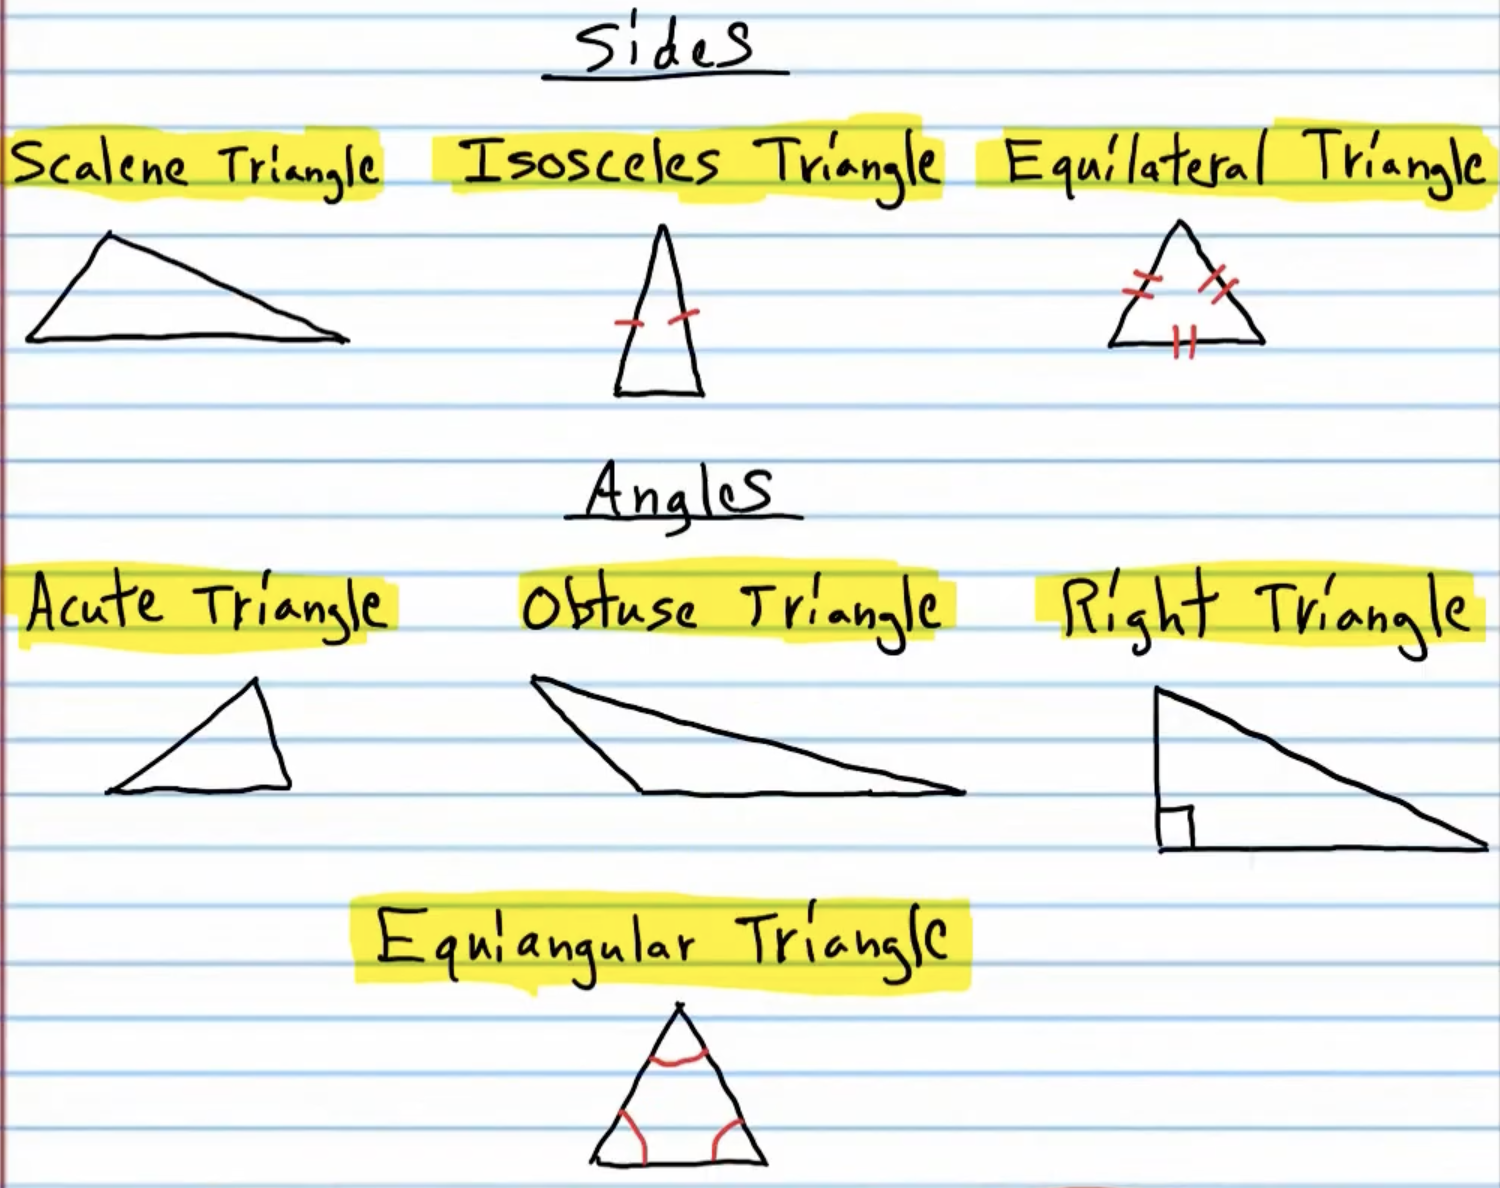 Sides
Scalene Triangle Isosceles Triangle Equilateral Triangle
Angles
Acute Triangle Obtuse Triangle Right Triangle
Equiangular Triangle